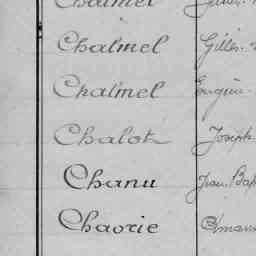 Chalmel
Chalmel Gilles
Chalmel Eugène
Chalok Joseph
Chanu Jean Bap
Chaorie Amand